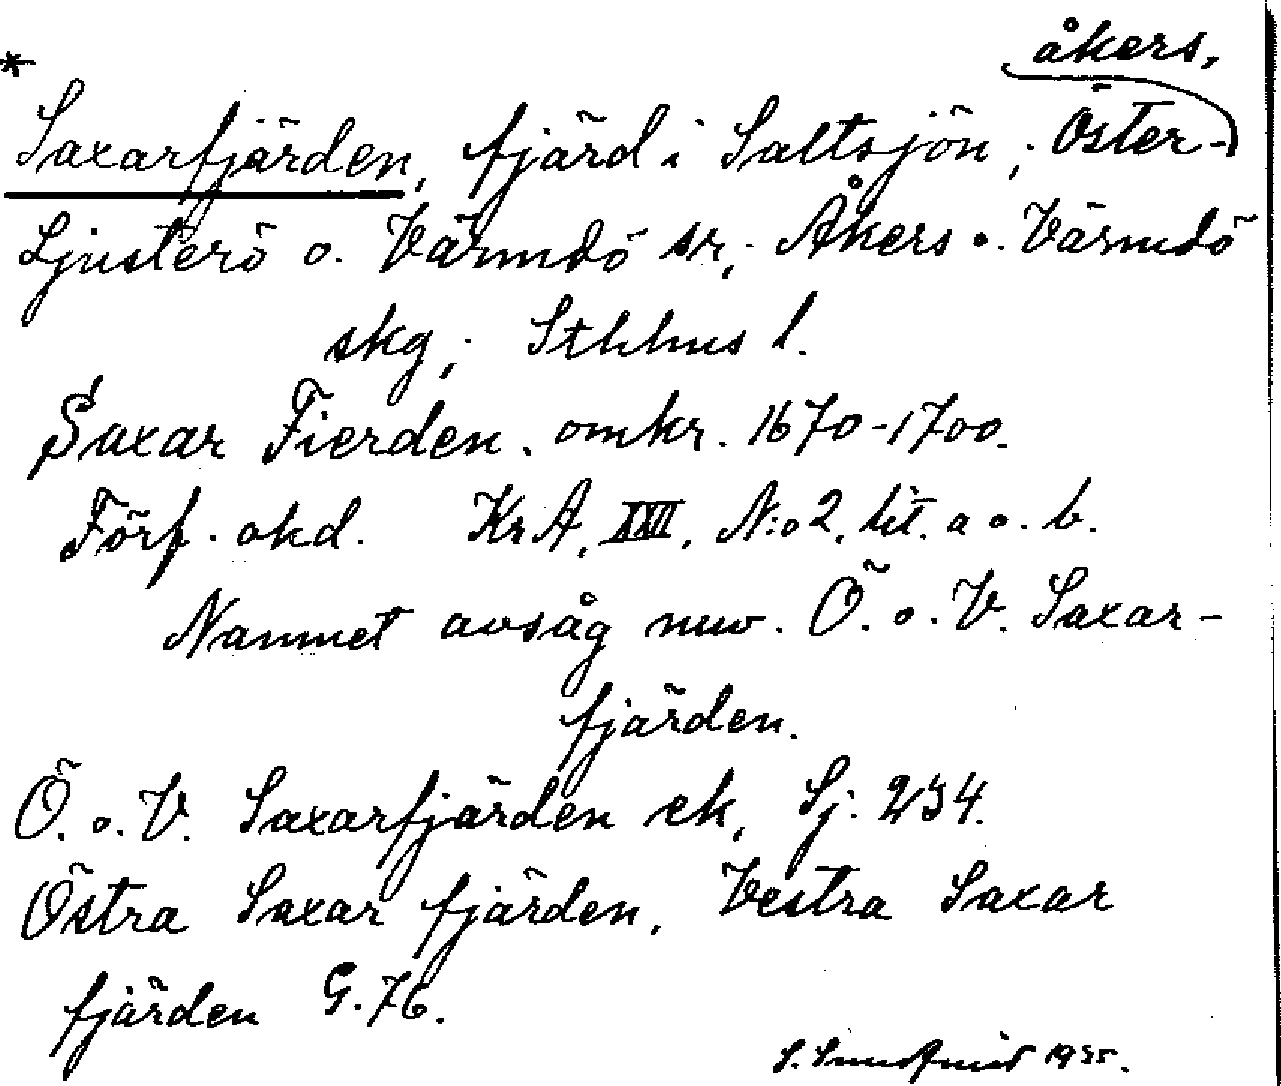 åkers,
* Saxarfjärden, fjärd i Saltsjön; Öster-
Ljusterö o. Värmdö sr; Åkers o. Värmdö
skg; Sthlms l.
Saxar Fierden. omkr. 1670-1700.
Förf. okd. KrA, XXVI, N:o 2, lit. a o. b.
Namnet avsåg nuv. Ö. o. V. Saxar-
fjärden.
Ö. o. V. Saxarfjärden ek, Sj. 234.
Östra Saxar fjärden, Vestra Saxar
fjärden G. 76.
S. 1935.